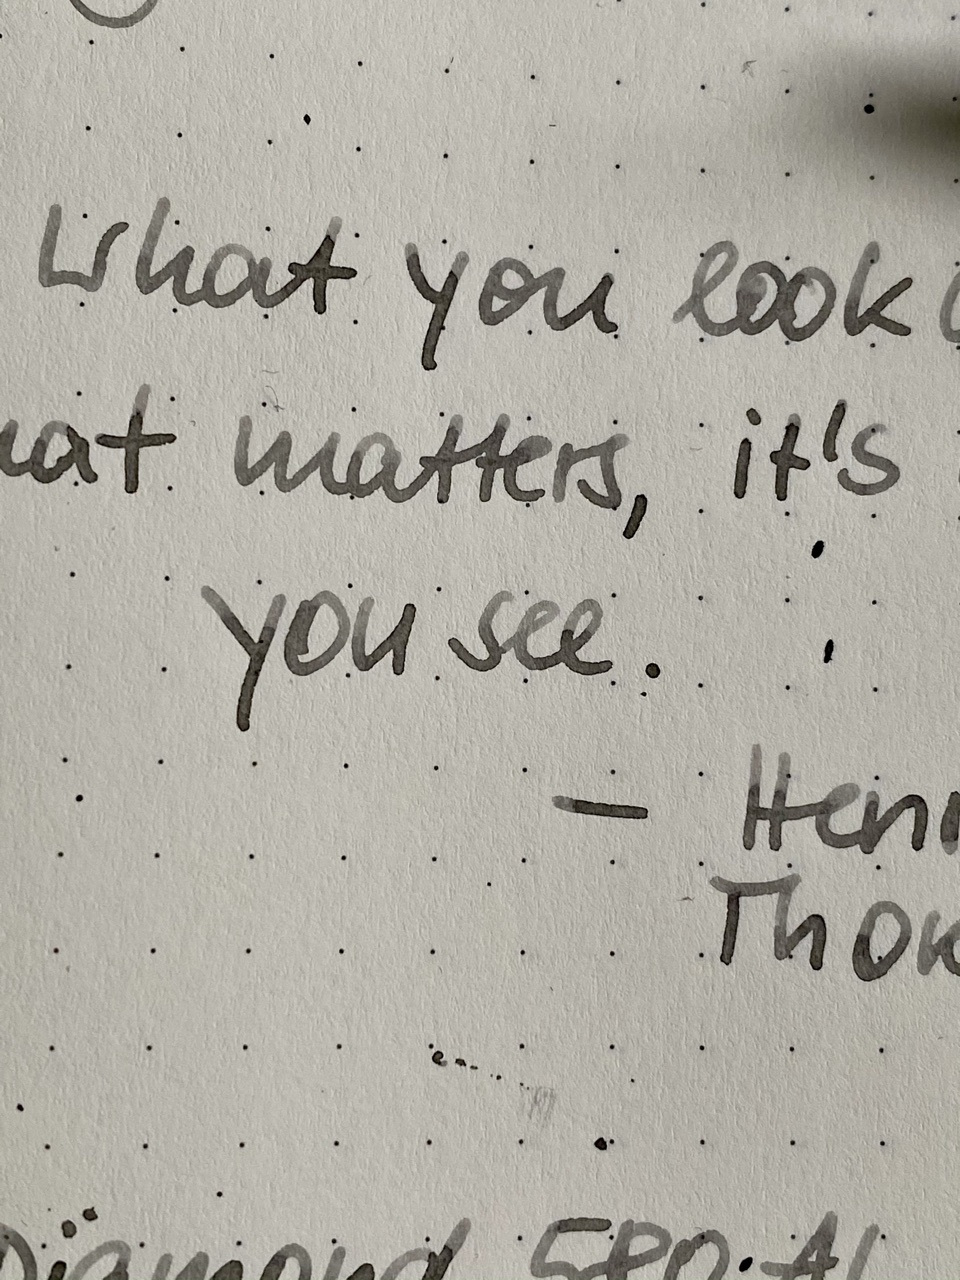 What you look
matters, it's
you see.
— Hen
Tho
Diamond 580 Al